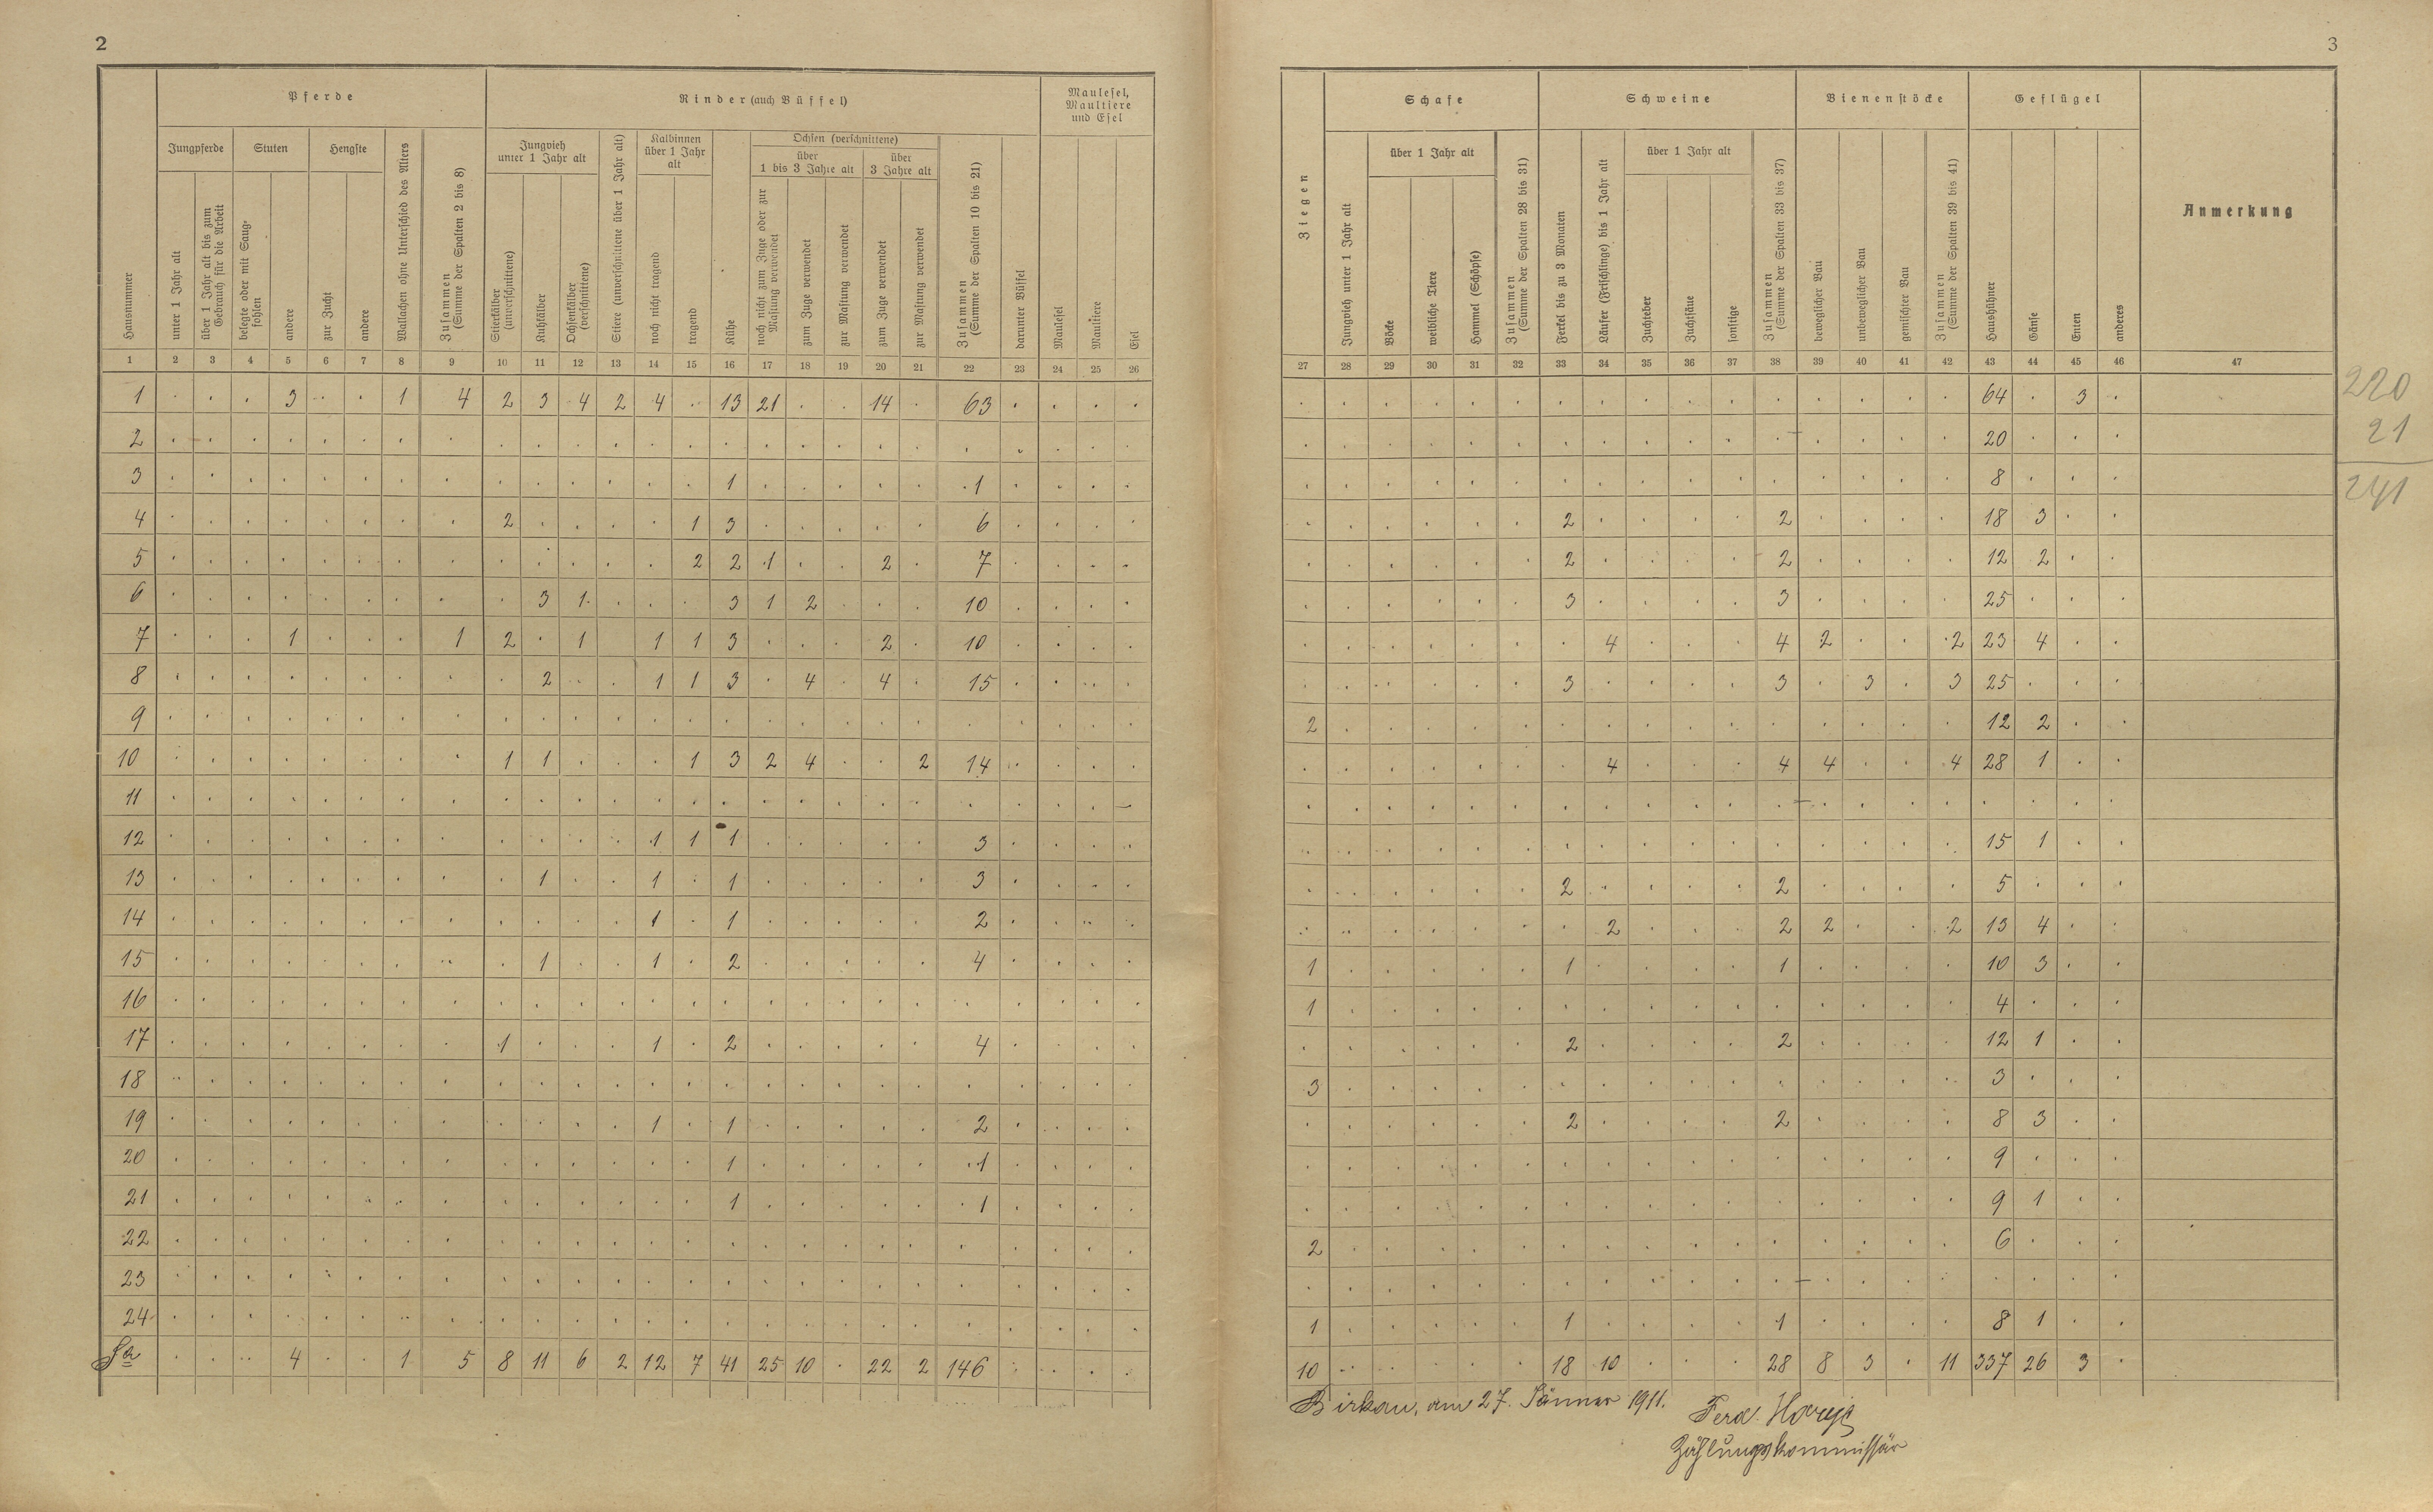 2
Pferde
Rinder (auch Büffel)
Maulesel,
Maultiere
und Esel
Jungpferde
Stuten
Hengste
Jungvieh
unter 1 Jahr alt
Kalbinnen
über 1 Jahr
alt
Ochsen (verschnittene)
über
1 bis 3 Jahre alt
über
3 Jahre alt
Hausnummer
unter 1 Jahr alt
über 1 Jahr alt bis zum
Gebrauch für die Arbeit
belegte oder mit Saug-
fohlen
andere
zur Zucht
andere
Wallachen ohne Unterschied des Alters
Zusammen
(Summe der Spalten 2 bis 8)
Stierkälber
(unverschnittene)
Kuhkälber
Ochsenkälber
(verschnittene)
Stiere (unverschnittene über 1 Jahr alt)
noch nicht tragend
tragend
Kühe
noch nicht zum Zuge oder zur
Mastung verwendet
zum Zuge verwendet
zur Mastung verwendet
zum Zuge verwendet
zur Mastung verwendet
Zusammen
(Summe der Spalten 10 bis 21)
darunter Büffel
Maulesel
Maultiere
Esel
1 2 3 4 5 6 7 8 9 10 11 12 13 14 15 16 17 18 19 20 21 22 23 24 25 26
1 . . . 3 . . 1 4 2 3 4 2 4 . 13 21 . . 14 . 63 . . . .
2 . . . . . . . . . . . . . . . . . . . . . . . . .
3 . . . . . . . . . . . . . . 1 . . . . . 1 . . . .
4 . . . . . . . . 2 . . . . 1 3 . . . . . 6 . . . .
5 . . . . . . . . . . . . . 2 2 1 . . 2 . 7 . . . .
6 . . . . . . . . . 3 1 . . . 3 1 2 . . . 10 . . . .
7 . . . 1 . . . 1 2 . 1 1 1 3 . . . 2 . 10 . . . .
8 . . . . . . . . . 2 . . 1 1 3 . 4 . 4 . 15 . . . .
9 . . . . . . . . . . . . . . . . . . . . . . . . .
10 . . . . . . . . 1 1 . . . 1 3 2 4 . . 2 14 . . . .
11 . . . . . . . . . . . . . . . . . . . . . . . . –
12 . . . . . . . . . . . . 1 1 1 . . . . . 3 . . . .
13 . . . . . . . . . 1 . . 1 . 1 . . . . . 3 . . . .
14 . . . . . . . . . . . . 1 . 1 . . . . . 2 . . . .
15 . . . . . . . . . 1 . . 1 . 2 . . . . . 4 . . . .
16 . . . . . . . . . . . . . . . . . . . . . . . . .
17 . . . . . . . . 1 . . . 1 . 2 . . . . . 4 . . . .
18 . . . . . . . . . . . . . . . . . . . . . . . . .
19 . . . . . . . . . . . . 1 . 1 . . . . . 2 . . . .
20 . . . . . . . . . . . . . . 1 . . . . . 1 . . . .
21 . . . . . . . . . . . . . . 1 . . . . . 1 . . . .
22 . . . . . . . . . . . . . . . . . . . . . . . . .
23 . . . . . . . . . . . . . . . . . . . . . . . . .
24 . . . . . . . . . . . . . . . . . . . . . . . . .
Sa . . . 4 . . 1 5 8 11 6 2 12 7 41 25 10 . 22 2 146 . . . .
3
Schafe
Schweine
Bienenstöcke
Geflügel
Anmerkung
über 1 Jahr alt
über 1 Jahr alt
Ziegen
Jungvieh unter 1 Jahr alt
Böcke
weibliche Tiere
Hammel (Schöpse)
Zusammen
(Summe der Spalten 28 bis 31)
Ferkel bis zu 3 Monaten
Läufer (Frischlinge) bis 1 Jahr alt
Zuchteber
Zuchtsäue
sonstige
Zusammen
(Summe der Spalten 33 bis 37)
beweglicher Bau
unbeweglicher Bau
gemischter Bau
Zusammen
(Summe der Spalten 39 bis 41)
Haushühner
Gänse
Enten
anderes
27 28 29 30 31 32 33 34 35 36 37 38 39 40 41 42 43 44 45 46 47
. . . . . . . . . . . . . . . . 64 . 3 .
. . . . . . . . . . . . . . . . 20 . . .
. . . . . . . . . . . . . . . . 8 . . .
. . . . . . 2 . . . . 2 . . . . 18 3 . .
. . . . . . 2 . . . . 2 . . . . 12 2 . .
. . . . . . 3 . . . . 3 . . . . 25 . . .
. . . . . . . 4 . . . 4 2 . . 2 23 4 . .
. . . . . . 3 . . . . 3 . 3 . 3 25 . . .
2 . . . . . . . . . . . . . . . 12 2 . .
. . . . . . . 4 . . . 4 4 . . 4 28 1 . .
. . . . . . . . . . . . . . . . . . . .
. . . . . . . . . . . . . . . . 15 1 . .
. . . . . . 2 . . . . 2 . . . . 5 . . .
. . . . . . . 2 . . . 2 2 . . 2 13 4 . .
1 . . . . . 1 . . . . 1 . . . . 10 3 . .
1 . . . . . . . . . . . . . . . 4 . . .
. . . . . . 2 . . . . 2 . . . . 12 1 . .
3 . . . . . . . . . . . . . . . 3 . . .
. . . . . . 2 . . . . 2 . . . . 8 3 . .
. . . . . . . . . . . . . . . . 9 . . .
. . . . . . . . . . . . . . . . 9 1 . .
2 . . . . . . . . . . . . . . . 6 . . .
. . . . . . . . . . . . . . . . . . . .
1 . . . . . 1 . . . . 1 . . . . 8 1 . .
10 . . . . . 18 10 . . . 28 8 3 . 11 337 26 3 .
220
21
241
Birkau, am 27. Jänner 1911.
Ferd.
Zählungskommissär